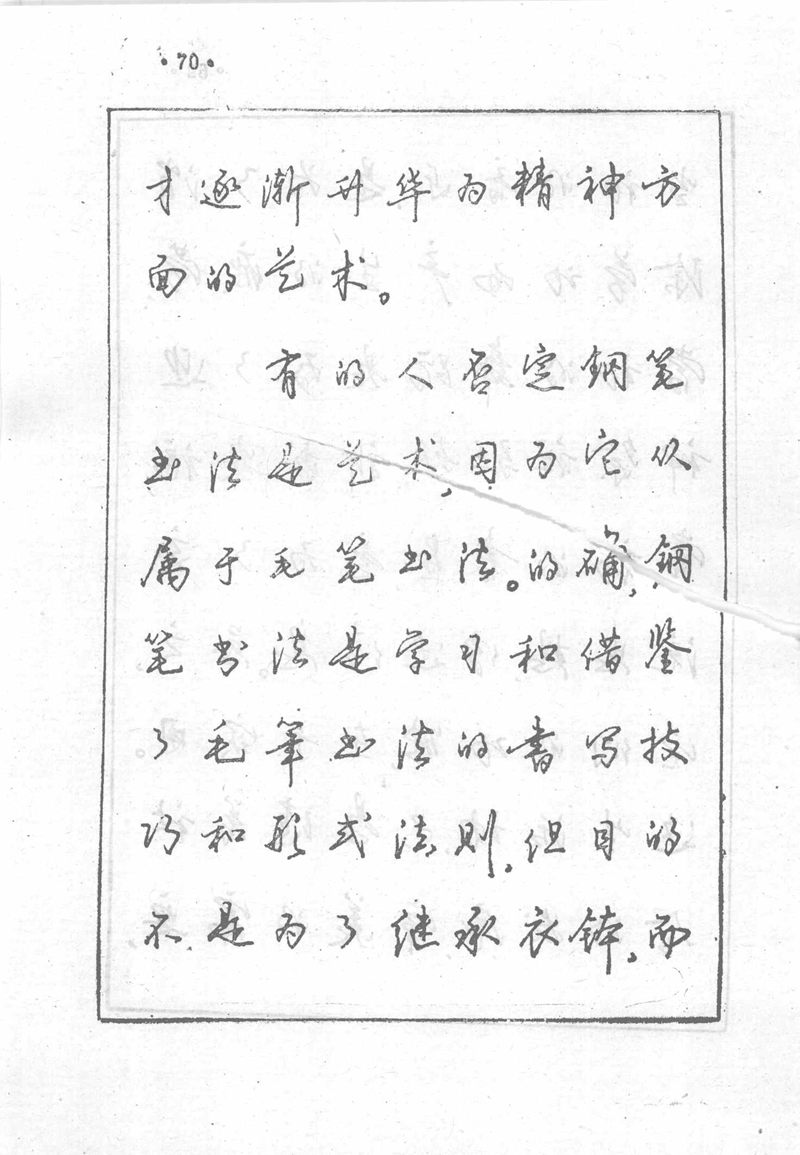 •70•
才逐渐升华为精神方
面的艺术。
有的人否定钢笔
书法是艺术,因为它从
属于毛笔书法。的确,钢
笔书法是学习和借鉴
了毛笔书法的书写技
巧和形式法则,但目的
不是为了继承衣钵,而